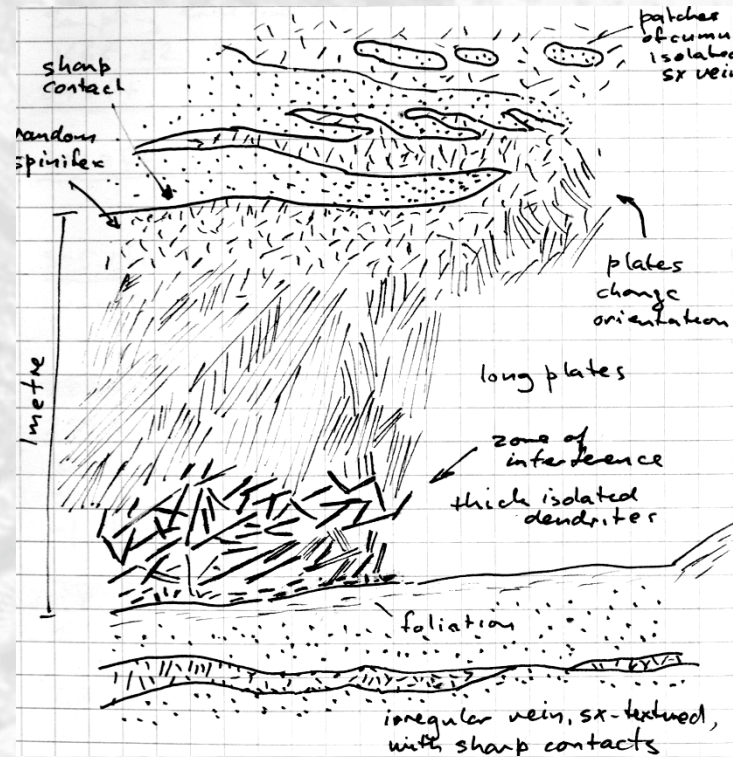 patches
of cumu
isolated
sx vein
sharp
contact
random
spinifex
plates
change
orientation
1 metre
long plates
zone of
interference
thick isolated
dendrites
foliation
irregular vein, sx-textured,
with sharp contacts